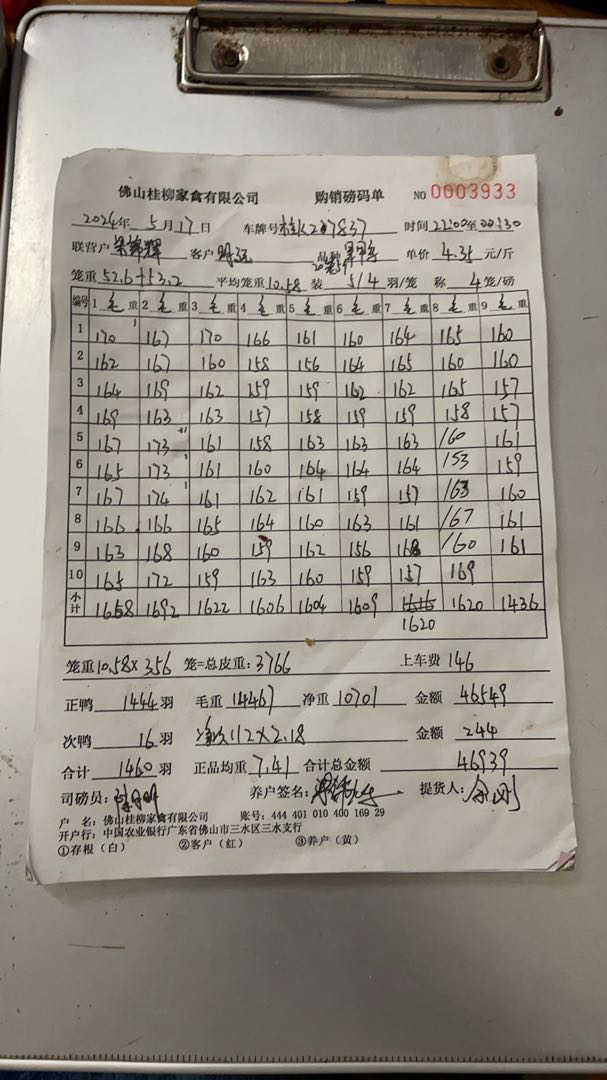 佛山桂柳家禽有限公司 购销磅码单 NO 0003933
2024年 5月17日 车牌号 桂K207837 时间 22:00至00:30
联营户 客户 品种 单价 4.35 元/斤
笼重 52.6+53.2 平均笼重 10.58 装 5/4 羽/笼 称 4 笼/磅
编号 1 毛 重 2 毛 重 3 毛 重 4 毛 重 5 毛 重 6 毛 重 7 毛 重 8 毛 重 9 毛 重
1 170 167 170 166 161 160 164 165 160
2 162 167 160 158 156 164 165 160 160
3 164 169 162 159 159 162 162 165 157
4 169 163 163 157 158 159 159 158 157
5 167 173 161 158 163 163 163 160 161
6 165 173 161 160 164 164 164 153 159
7 167 174 161 162 161 159 157 163 160
8 166 166 165 164 160 163 161 167 161
9 163 168 160 159 162 156 168 160 161
10 165 172 159 163 160 159 157 169
小计 1658 1692 1622 1606 1604 1609 1616 1620 1436
1620
笼重 10.58×356 笼=总皮重:3766 上车费 146
正鸭 1444 羽 毛重 14467 净重 10701 金额 46549
次鸭 16 羽 112×2.18 金额 244
合计 1460 羽 正品均重 7.41 合计总金额 46939
司磅员: 养户签名: 提货人:
户 名:佛山桂柳家禽有限公司 账号:444 401 010 400 169 29
开户行:中国农业银行广东省佛山市三水区三水支行
①存根(白) ②客户(红) ③养户(黄)